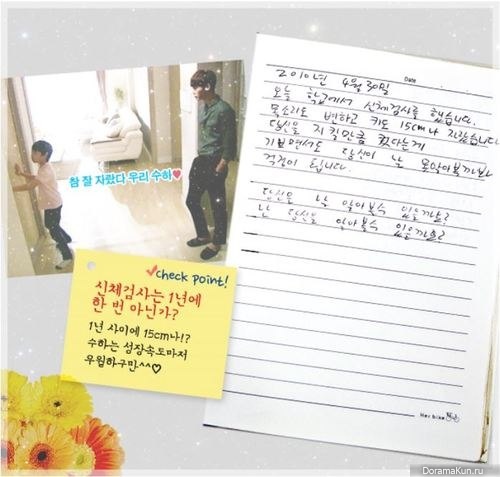 참 잘 자랐다 우리 수하♥
✓check point!
신체검사는 1년에
한 번 아닌가?
1년 사이에 15cm나!?
수하는 성장속도마저
우월하구만^^♡
Date
2010년 4월 30일
오늘 학교에서 신체검사를 했습니다.
목소리도 변하고 키도 15cm나 자랐습니다.
당신을 지킬만큼 컸다는게
기쁘면서도 당신이 날 못알아볼까봐
걱정이 됩니다.
당신은 날 알아볼수 있을까요?
난 당신을 알아볼수 있을까요?
Her bike
DoramaKun.ru